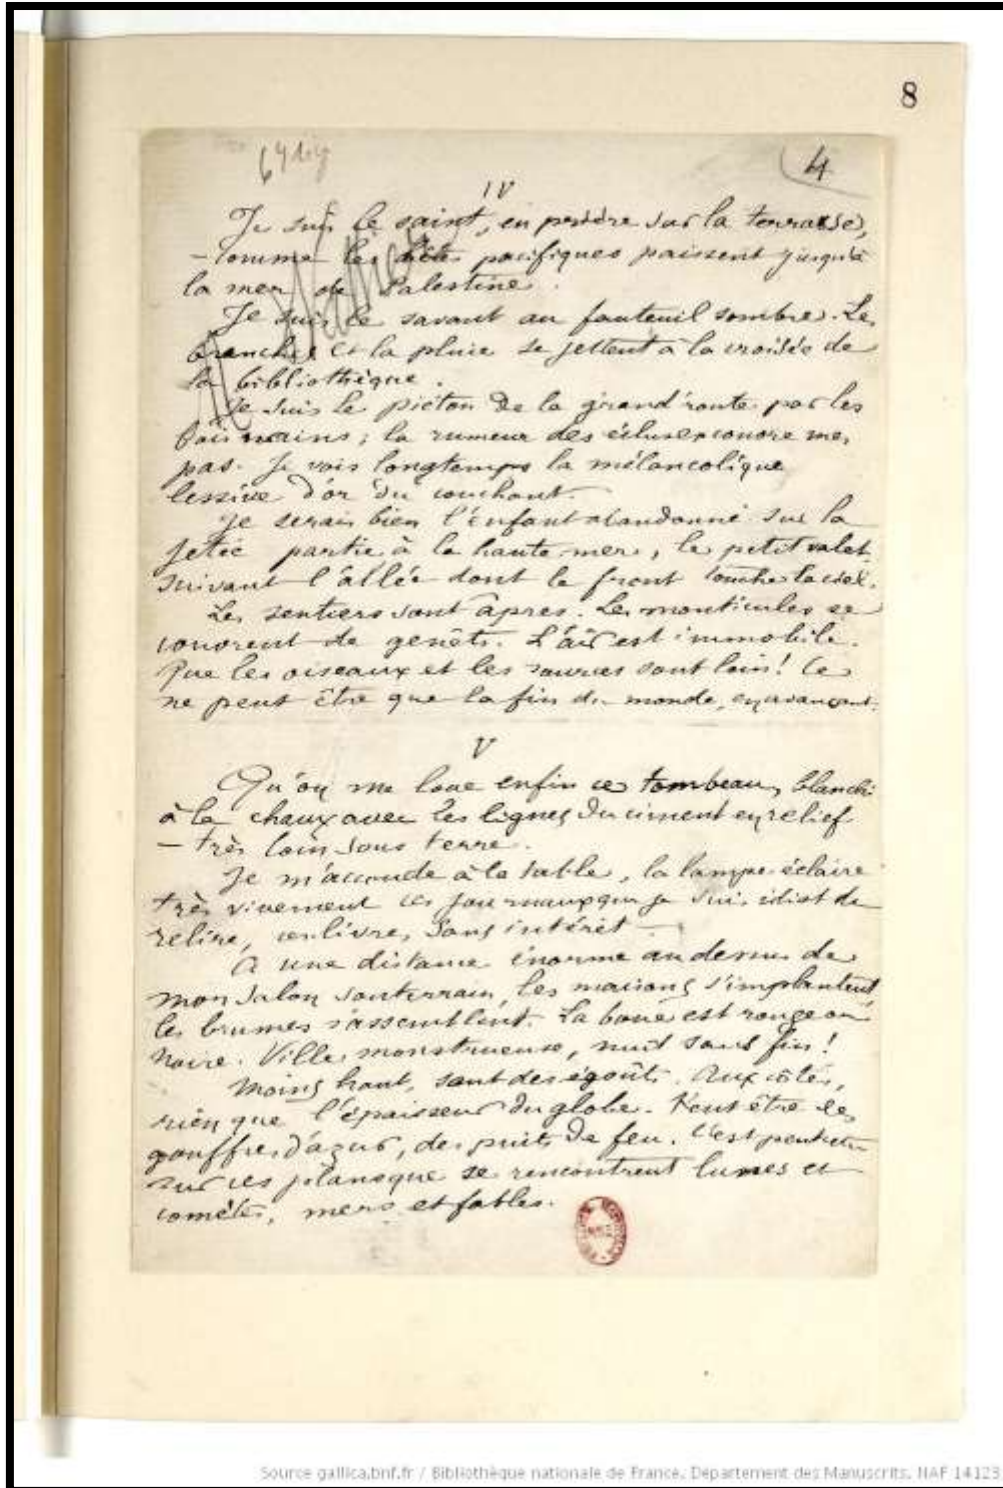 8
4
IV
Je suis le saint, en prière sur la terrasse,
– comme les bêtes pacifiques paissent jusqu'à
la mer de Palestine.
Je suis le savant au fauteuil sombre. Les
branches et la pluie se jettent à la croisée de
la bibliothèque.
Je suis le piéton de la grand'route par les
bois nains ; la rumeur des écluses couvre mes
pas. Je vois longtemps la mélancolique
lessive d'or du couchant.
Je serais bien l'enfant abandonné sur la
jetée partie à la haute mer, le petit valet,
suivant l'allée dont le front touche le ciel.
Les sentiers sont âpres. Les monticules se
couvrent de genêts. L'air est immobile.
Que les oiseaux et les sources sont loin ! Ce
ne peut être que la fin du monde, en avançant.
V
Qu'on me loue enfin ce tombeau, blanchi
à la chaux avec les lignes du ciment en relief
– très loin sous terre.
Je m'accoude à la table, la lampe éclaire
très vivement ces journaux que je suis idiot de
relire, ces livres sans intérêt –
A une distance énorme au dessus de
mon salon souterrain, les maisons s'implantent,
les brumes s'assemblent. La boue est rouge ou
noire. Ville monstrueuse, nuit sans fin !
Moins haut, sont des égoûts. Aux côtés,
rien que l'épaisseur du globe. Peut être les
gouffres d'azur, des puits de feu. C'est peut-être
sur ces plans que se rencontrent lunes et
comètes, mers et fables.
Source gallica.bnf.fr / Bibliothèque nationale de France. Département des Manuscrits. NAF 14123